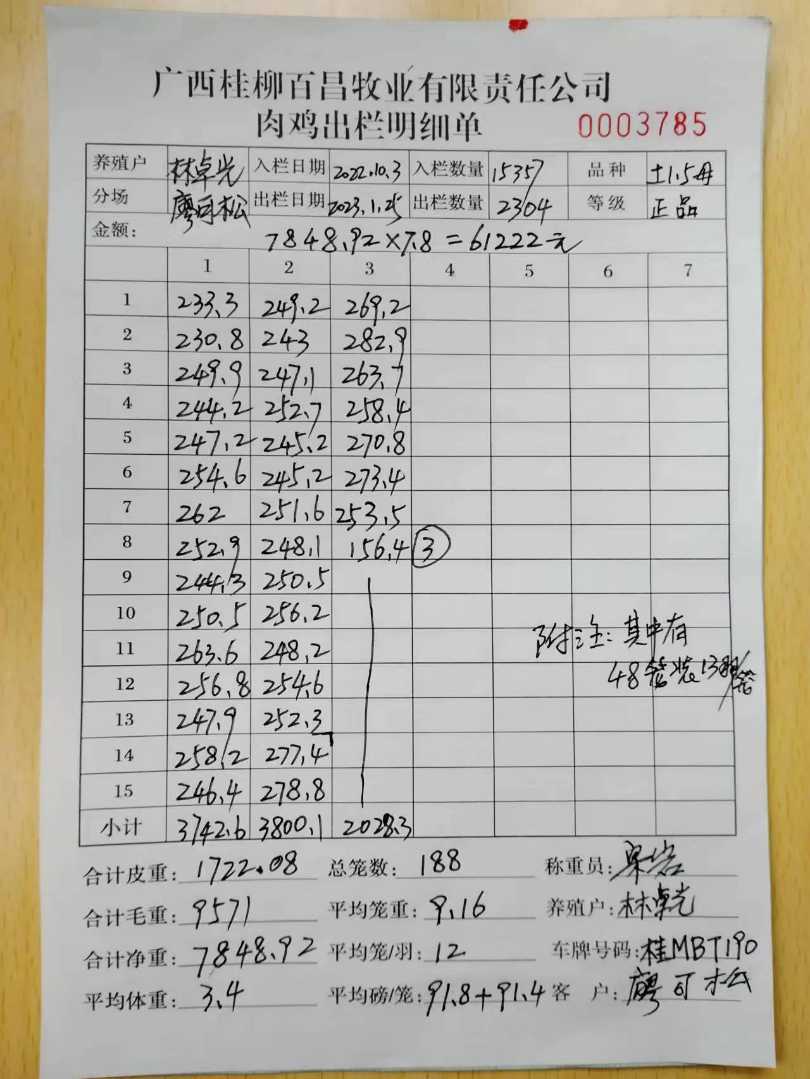 广西桂柳百昌牧业有限责任公司
肉鸡出栏明细单 0003785
养殖户 林卓光 入栏日期 2022.10.3 入栏数量 15357 品种 土1.5母
分场 廖可松 出栏日期 2023.1.25 出栏数量 2304 等级 正品
金额: 7848.92×7.8=61222元
1 2 3 4 5 6 7
1 233.3 249.2 269.2
2 230.8 243 282.9
3 249.9 247.1 263.7
4 244.2 252.7 258.4
5 247.2 245.2 270.8
6 254.6 245.2 273.4
7 262 251.6 253.5
8 252.9 248.1 156.4 ③
9 244.3 250.5
10 250.5 256.2
11 263.6 248.2 附注:其中有
12 256.8 254.6 48笼装13羽/笼
13 247.9 252.3
14 258.2 277.4
15 246.4 278.8
小计 3742.6 3800.1 2028.3
合计皮重: 1722.08 总笼数: 188 称重员:
合计毛重: 9571 平均笼重: 9.16 养殖户: 林卓光
合计净重: 7848.92 平均笼/羽: 12 车牌号码: 桂MBT190
平均体重: 3.4 平均磅/笼: 91.8+91.4 客户: 廖可松